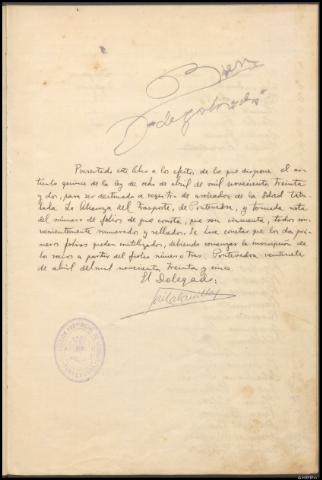 Presentado este libro a los efectos de lo que dispone el ar-
tículo quince de la ley de ocho de abril de mil novecientos treinta
y dos, para ser destinado a registro de asociados de la Sociedad
La Alianza del Trasporte, de Pontevedra, y tomada nota
del número de folios de que consta, que son cincuenta, todos con-
venientemente numerados y sellados. Se hace constar que los dos pri-
meros folios quedan inutilizados, debiendo comenzar la inscripción de
los socios a partir del folio número tres. Pontevedra veintisiete
de abril de mil novecientos treinta y cinco
El Delegado,